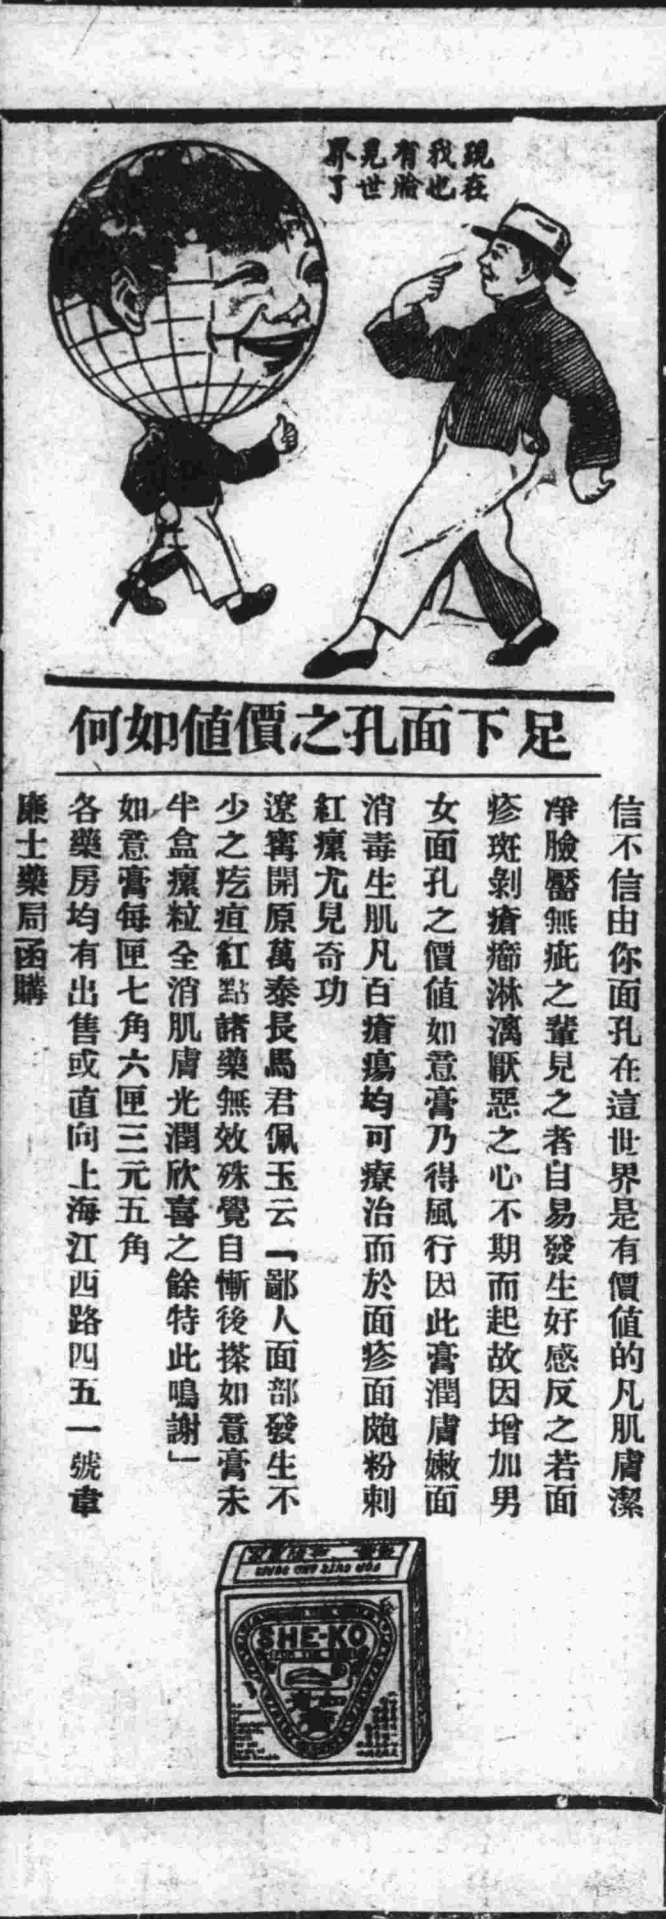 現在
我也
有臉
見世
界了
足下面孔之價值如何
信不信由你面孔在這世界是有價值的凡肌膚潔
淨臉靨無疵之輩見之者自易發生好感反之若面
疹斑剝瘡癤淋漓厭惡之心不期而起故因增加男
女面孔之價值如意膏乃得風行因此膏潤膚嫩面
消毒生肌凡百瘡瘍均可療治而於面疹面皰粉刺
紅瘰尤見奇功
遼寗開原萬泰長馬君佩玉云「鄙人面部發生不
少之疙疸紅點諸藥無效殊覺自慚後搽如意膏未
半盒瘰粒全消肌膚光潤欣喜之餘特此鳴謝」
如意膏每匣七角六匣三元五角
各藥房均有出售或直向上海江西路四五一號韋
廉士藥局函購
FOR CUTS AND SORES
SHE-KO